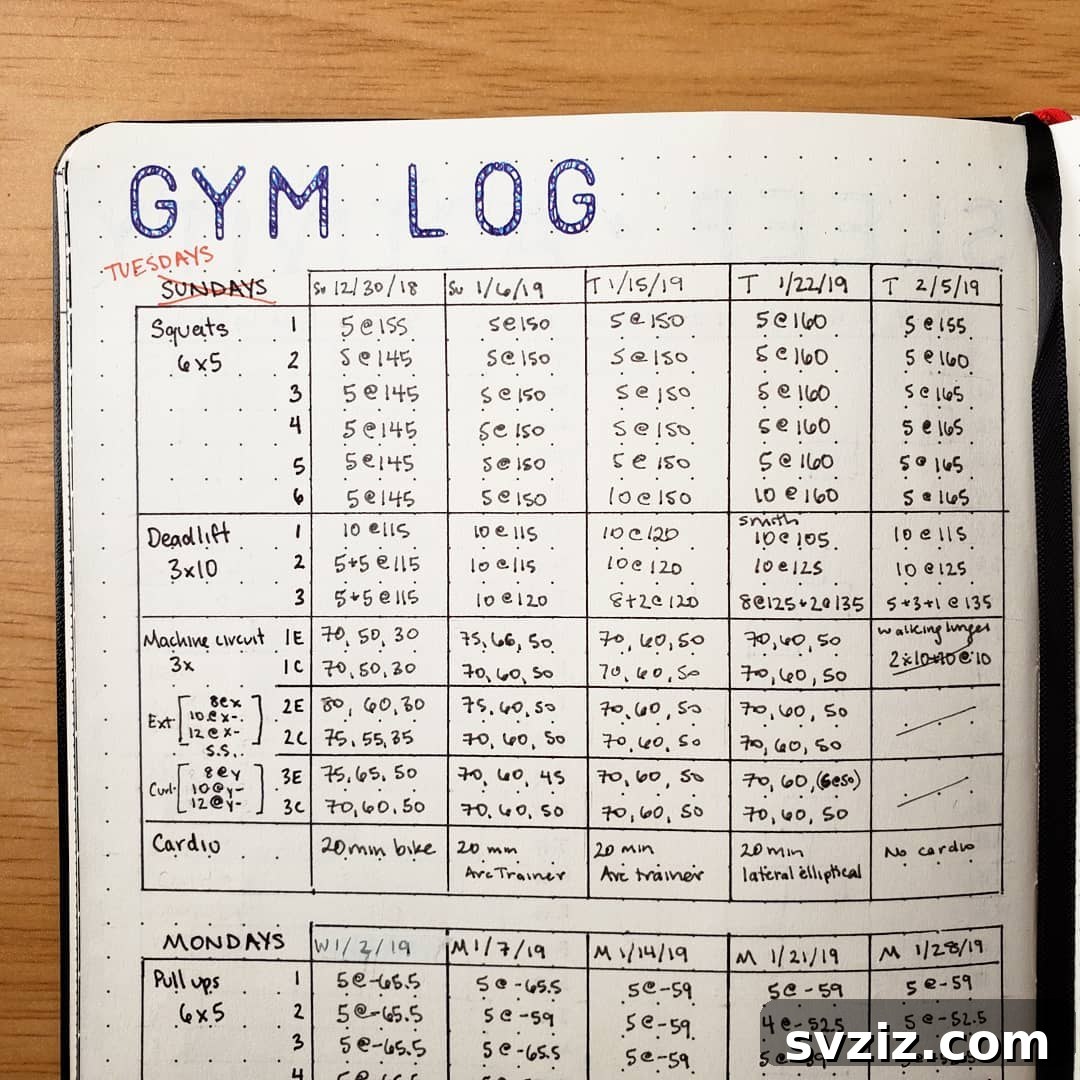 GYM LOG
TUESDAYS
SUNDAYS Su 12/30/18 Su 1/6/19 T 1/15/19 T 1/22/19 T 2/5/19
Squats 1 5@155 5@150 5@150 5@160 5@155
6x5 2 5@145 5@150 5@150 5@160 5@160
3 5@145 5@150 5@150 5@160 5@165
4 5@145 5@150 5@150 5@160 5@165
5 5@145 5@150 5@150 5@160 5@165
6 5@145 5@150 10@150 10@160 5@165
smith
Deadlift 1 10@115 10@115 10@120 10@105 10@115
3x10 2 5+5@115 10@115 10@120 10@125 10@125
3 5+5@115 10@120 8+2@120 8@125+2@135 5+3+1@135
Machine circuit 1E 70, 50, 30 75, 66, 50 70, 60, 50 70, 60, 50 walking lunges
3x 1C 70, 50, 30 70, 60, 50 70, 60, 50 70, 60, 50 2x10+10@10
Ext 8@x 10@x-. 12@x- 2E 80, 60, 30 75, 60, 50 70, 60, 50 70, 60, 50
S.S. 2C 75, 55, 35 70, 60, 50 70, 60, 50 70, 60, 50
Curl 8@y 10@y- 12@y- 3E 75, 65, 50 70, 60, 45 70, 60, 50 70, 60, (6@50)
3C 70, 60, 50 70, 60, 50 70, 60, 50 70, 60, 50
Cardio 20 min bike 20 min 20 min 20 min No cardio
Arc Trainer Arc trainer lateral elliptical
MONDAYS W 1/2/19 M 1/7/19 M 1/14/19 M 1/21/19 M 1/28/19
Pull ups 1 5@-65.5 5@-65.5 5@-59 5@-59 5@-59
6x5 2 5@-65.5 5@-59 5@-59 4@-52.5 5@-52.5
3 5@-65.5 5@-65.5 5@-59
4
svziz.com